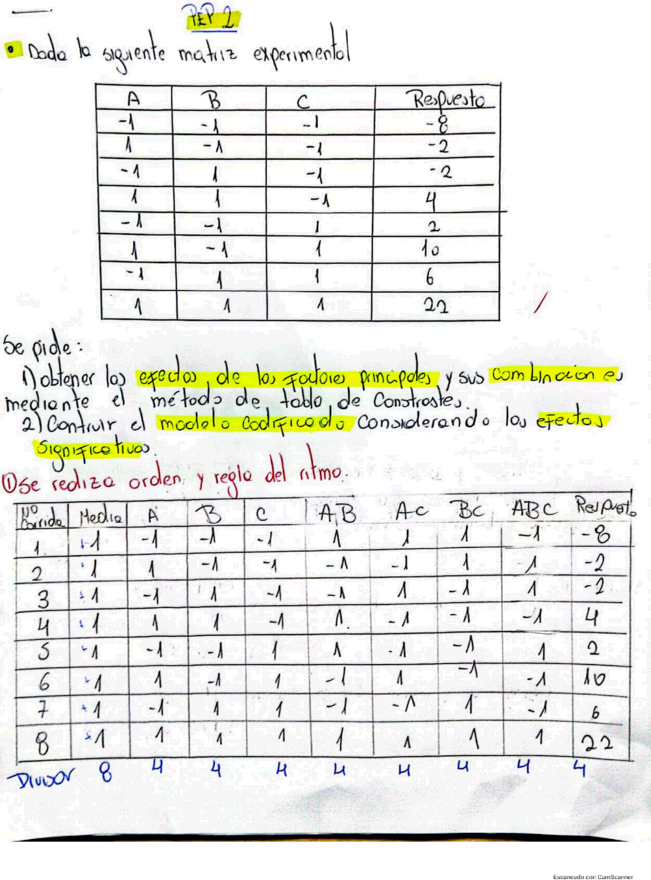 PEP 2
• Dada la siguiente matriz experimental
A B C Respuesta
-1 -1 -1 -8
1 -1 -1 -2
-1 1 -1 -2
1 1 -1 4
-1 -1 1 2
1 -1 1 10
-1 1 1 6
1 1 1 22
Se pide:
1) obtener los efectos de los factores principales y sus combinaciones
mediante el método de tabla de Constrastes.
2) Contruir el modelo codificado considerando los efectos
significativos.
① Se realiza orden y regla del ritmo.
Nº Corrida Media A B C AB AC BC ABC Respuesta
1 +1 -1 -1 -1 1 1 1 -1 -8
2 +1 1 -1 -1 -1 -1 1 1 -2
3 +1 -1 1 -1 -1 1 -1 1 -2
4 +1 1 1 -1 1 -1 -1 -1 4
5 +1 -1 -1 1 1 -1 -1 1 2
6 +1 1 -1 1 -1 1 -1 -1 10
7 +1 -1 1 1 -1 -1 1 -1 6
8 +1 1 1 1 1 1 1 1 22
Divisor 8 4 4 4 4 4 4 4 4
Escaneado con CamScanner